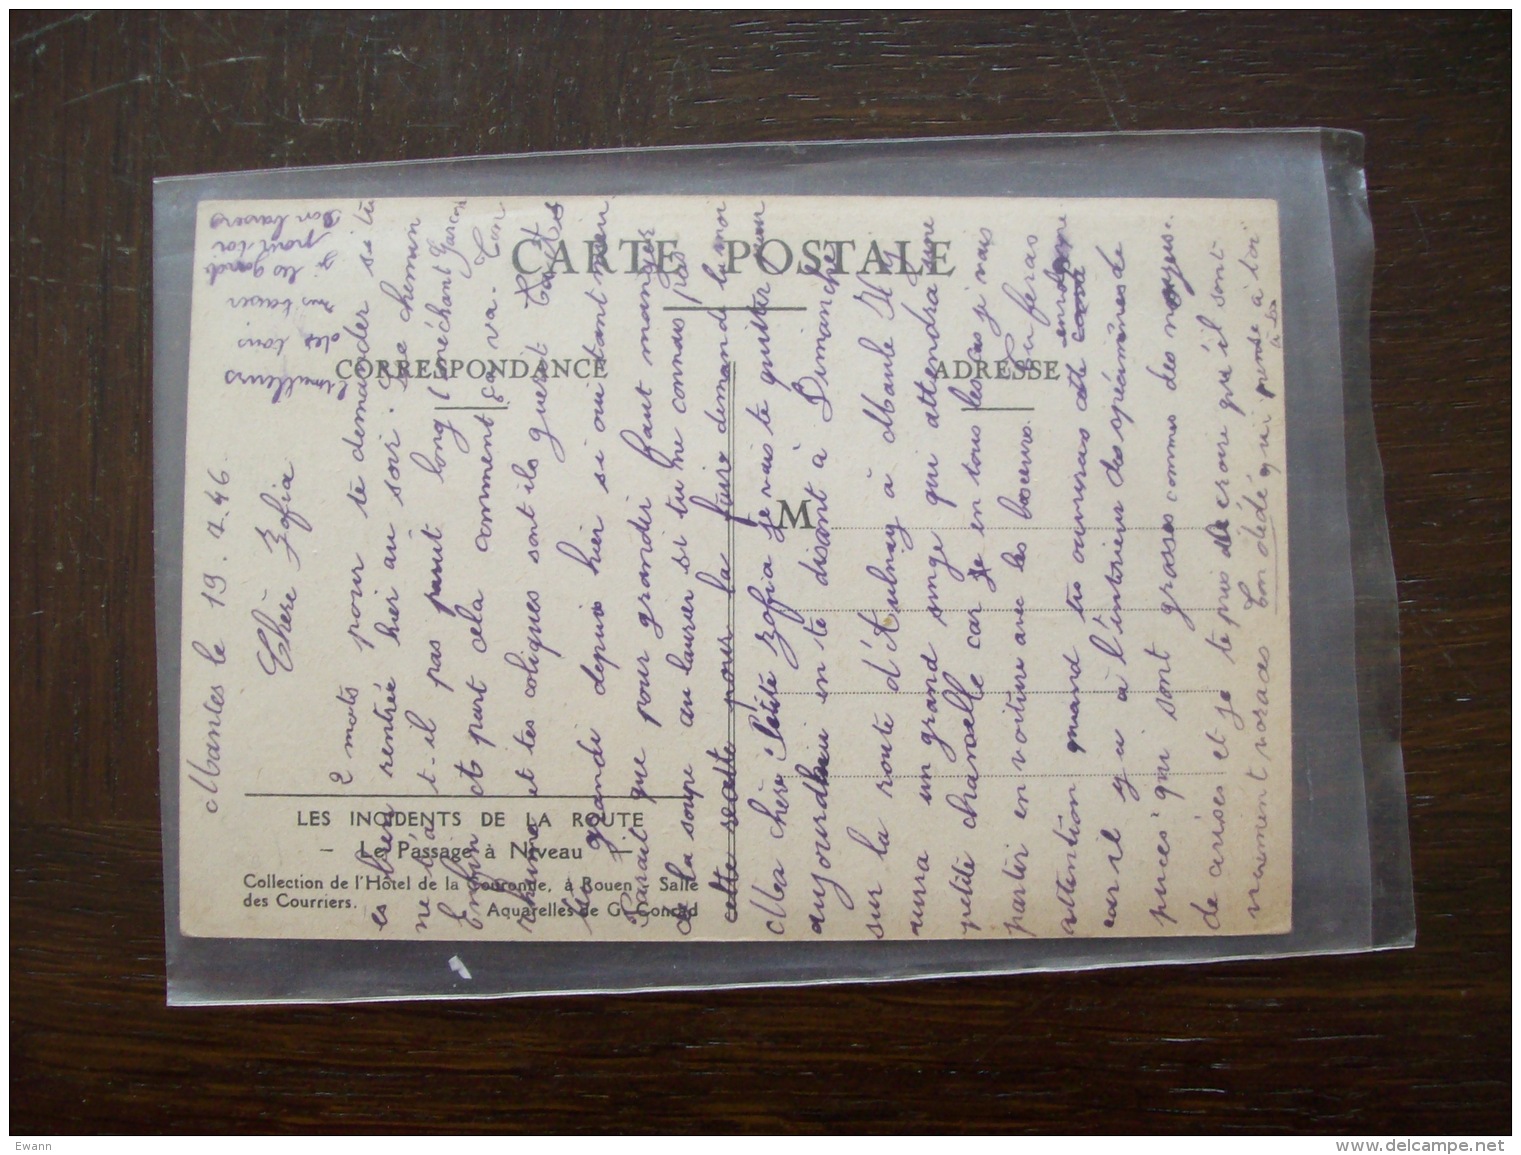 CARTE POSTALE
CORRESPONDANCE
ADRESSE
M
LES INCIDENTS DE LA ROUTE
- Le Passage à Niveau -
Collection de l'Hôtel de la Couronne, à Rouen - Salle
des Courriers.
Aquarelles de G. Conrad
Mantes le 19.7.46
Chère Zofia
2 mots pour te demander si tu
es bien rentrée hier au soir. Le chemin
ne t'a-t-il pas parut long méchant Garçon
Enfin et part cela comment ça va. Ton
rhume et tes coliques sont ils guerit Toutes
grandi depuis hier si oui tant mieu
Parait que pour grandir faut manger
de la soupe au laurier si tu ne connais pas
cette recette pour la faire demande la moi
Ma chère Petite Zofia je vais te quitter pour
aujourdhui en te disant à Dimanche
sur la route d'Aulnay à Maule Il y
aurra un grand singe qui attendra une
petite charelle car je en tous les cas je vais
partir en voiture avec les boeufs. Tu feras
attention quand tu ouvriras
car il y a à l'intérieur des spécimènes de
puces qui sont grasses commes des noyes.
de caries et je te prie de croire qu'il sont
vraiment voraces Ton dédé qui pense à toi
à toi
des bons
pour toi
bon baisers
Ewann
www.delcampe.net